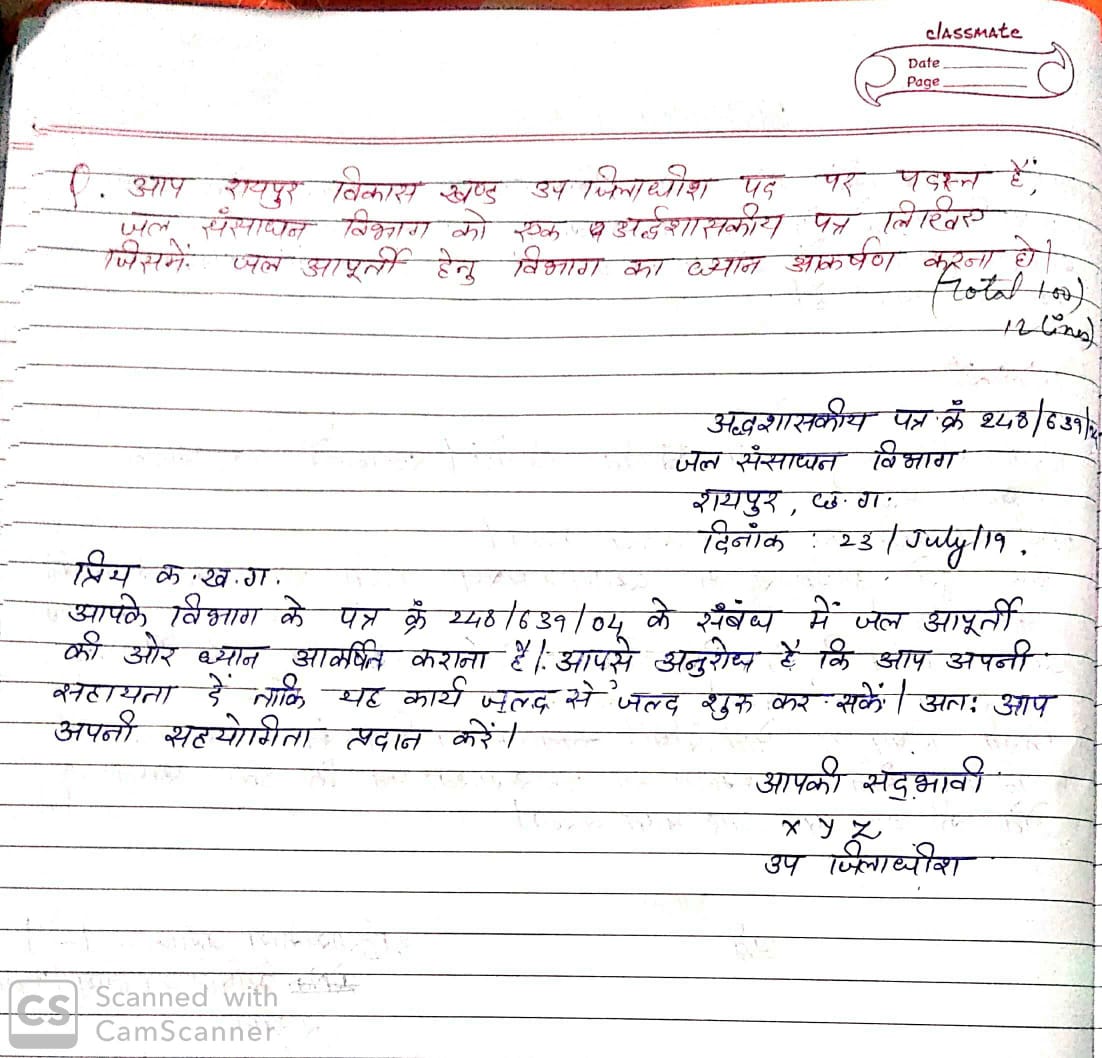 classmate
Date
Page
P. आप रायपुर विकास खण्ड उप जिलाधीश पद पर पदस्त हैं,
जल संसाधन विभाग को एक अर्द्धशासकीय पत्र लिखिए
जिसमें जल आपूर्ती हेतु विभाग का ध्यान आकर्षण करना हो।
(Total 100)
12 lines)
अर्द्धशासकीय पत्र क्रं 248/639/
जल संसाधन विभाग
रायपुर, छ.ग.
दिनांक : 23/July/19.
प्रिय क.ख.ग.
आपके विभाग के पत्र क्रं 248/639/04 के संबंध में जल आपूर्ती
की ओर ध्यान आकर्षित कराना है। आपसे अनुरोध है कि आप अपनी
सहायता दें ताकि यह कार्य जल्द से जल्द शुरु कर सकें। अतः आप
अपनी सहयोगिता प्रदान करें।
आपकी सद्भावी
x y z
उप जिलाधीश
CS Scanned with
CamScanner